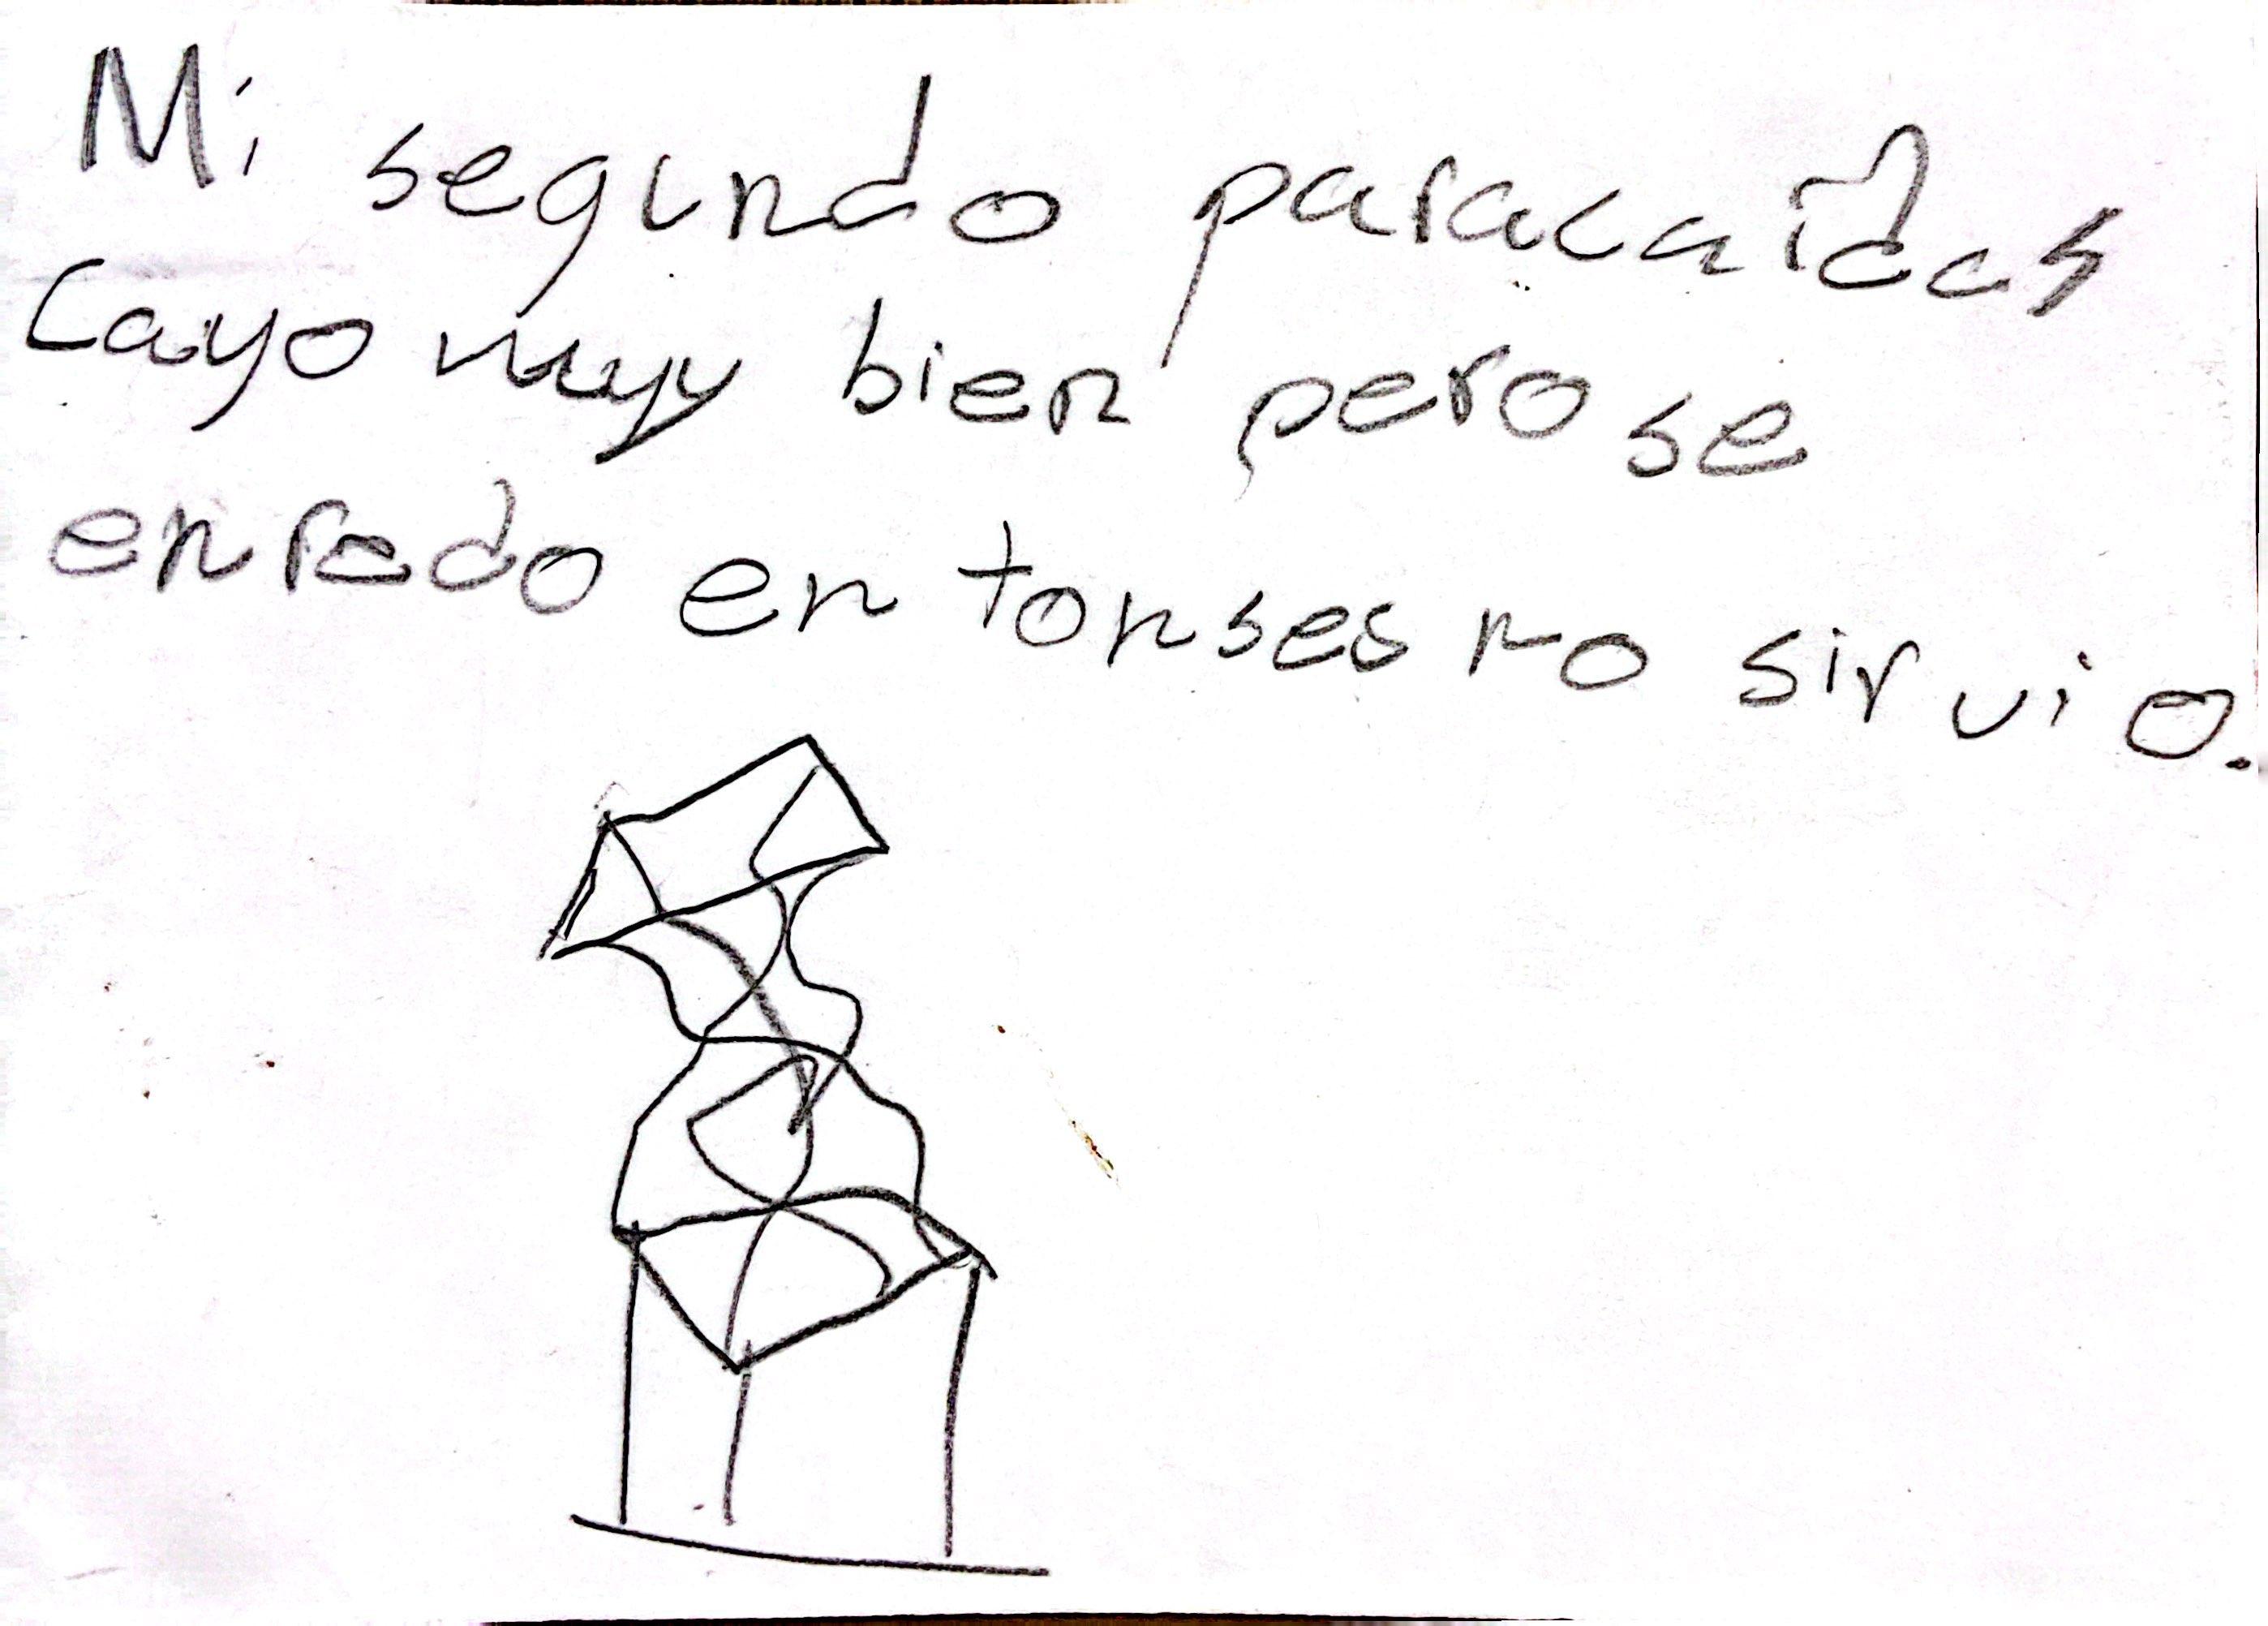 Mi segundo paracaídas
Cayo muy bien pero se
enredo en tonses no sirvio.